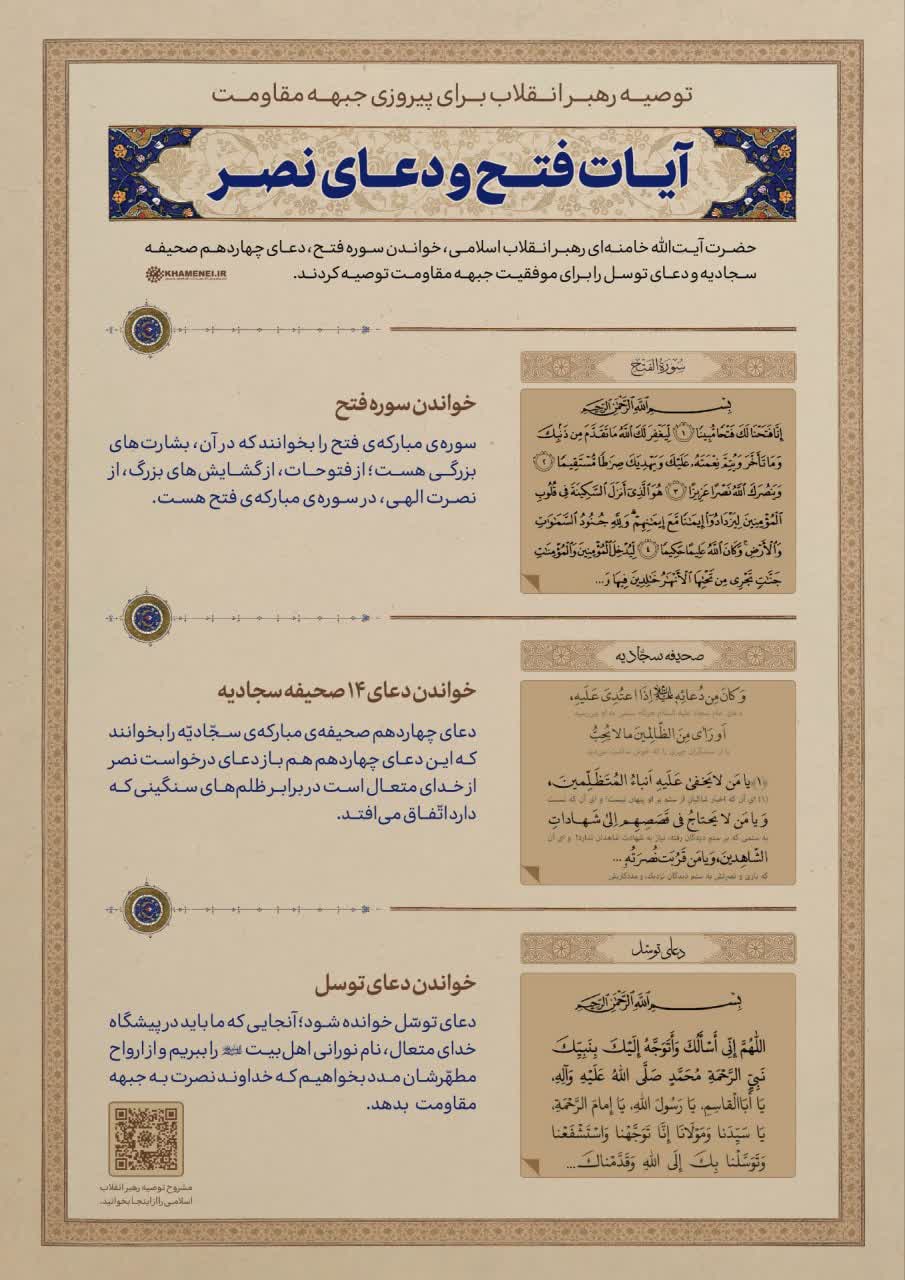 توصیه رهبر انقلاب برای پیروزی جبهه مقاومت
آیات فتح و دعای نصر
حضرت آیت‌الله خامنه‌ای رهبر انقلاب اسلامی، خواندن سوره فتح، دعای چهاردهم صحیفه
سجادیه و دعای توسل را برای موفقیت جبهه مقاومت توصیه کردند.
KHAMENEI.IR
سُورَةُ الفَتْح
بِسْمِ اللَّهِ الرَّحْمَٰنِ الرَّحِيمِ
إِنَّا فَتَحْنَا لَكَ فَتْحًا مُّبِينًا ﴿١﴾ لِّيَغْفِرَ لَكَ اللَّهُ مَا تَقَدَّمَ مِن ذَنبِكَ
وَمَا تَأَخَّرَ وَيُتِمَّ نِعْمَتَهُ عَلَيْكَ وَيَهْدِيَكَ صِرَاطًا مُّسْتَقِيمًا ﴿٢﴾
وَيَنصُرَكَ اللَّهُ نَصْرًا عَزِيزًا ﴿٣﴾ هُوَ الَّذِي أَنزَلَ السَّكِينَةَ فِي قُلُوبِ
الْمُؤْمِنِينَ لِيَزْدَادُوا إِيمَانًا مَّعَ إِيمَانِهِمْ وَلِلَّهِ جُنُودُ السَّمَاوَاتِ
وَالْأَرْضِ وَكَانَ اللَّهُ عَلِيمًا حَكِيمًا ﴿٤﴾ لِّيُدْخِلَ الْمُؤْمِنِينَ وَالْمُؤْمِنَاتِ
جَنَّاتٍ تَجْرِي مِن تَحْتِهَا الْأَنْهَارُ خَالِدِينَ فِيهَا وَ...
خواندن سوره فتح
سوره‌ی مبارکه‌ی فتح را بخوانند که در آن، بشارت‌های
بزرگی هست؛ از فتوحات، از گشایش‌های بزرگ، از
نصرت الهی، در سوره‌ی مبارکه‌ی فتح هست.
صحیفه سجادیه
وَ كَانَ مِن دُعَائِهِ عَلَيْهِ السَّلَامُ إِذَا اعْتُدِيَ عَلَيْهِ،
أَو رَأَى مِنَ الظَّالِمِينَ مَا لَا يُحِبُّ
﴿١﴾ يَا مَن لَا يَخْفَىٰ عَلَيهِ أَنبَاءُ المُتَظَلِّمِينَ،
(۱) ای آن که اخبار شاکیان از ستم بر او پنهان نیست؛ و ای آن که نسبت
وَ يَا مَن لَا يَحتَاجُ فِي قَصَصِهِم إِلَىٰ شَهَادَاتِ
به ستمی که بر ستم دیدگان رفته، نیاز به شهادت شاهدان ندارد؛ و ای آن
الشَّاهِدِينَ، وَ يَا مَن قَرُبَت نُصرَتُهُ ...
که یاری و نصرتش به ستم دیدگان نزدیک، و مددکاریش
خواندن دعای ۱۴ صحیفه سجادیه
دعای چهاردهم صحیفه‌ی مبارکه‌ی سجّادیّه را بخوانند
که این دعای چهاردهم هم باز دعای درخواست نصر
از خدای متعال است در برابر ظلم‌های سنگینی که
دارد اتّفاق می‌افتد.
دعای توسل
بِسْمِ اللَّهِ الرَّحْمَٰنِ الرَّحِيمِ
اللّٰهُمَّ إِنِّي أَسْأَلُكَ وَأَتَوَجَّهُ إِلَيْكَ بِنَبِيِّكَ
نَبِيِّ الرَّحْمَةِ مُحَمَّدٍ صَلَّى اللهُ عَلَيْهِ وَآلِهِ،
يَا أَبَا الْقَاسِمِ، يَا رَسُولَ اللهِ، يَا إِمَامَ الرَّحْمَةِ،
يَا سَيِّدَنَا وَمَوْلَانَا إِنَّا تَوَجَّهْنَا وَاسْتَشْفَعْنَا
وَتَوَسَّلْنَا بِكَ إِلَى اللهِ وَقَدَّمْنَاكَ...
خواندن دعای توسل
دعای توسّل خوانده شود؛ آنجایی که ما باید در پیشگاه
خدای متعال، نام نورانی اهل‌بیت را ببریم و از ارواح
مطهّرشان مدد بخواهیم که خداوند نصرت به جبهه
مقاومت بدهد.
مشروح توصیه رهبر انقلاب
اسلامی را از اینجا بخوانید.